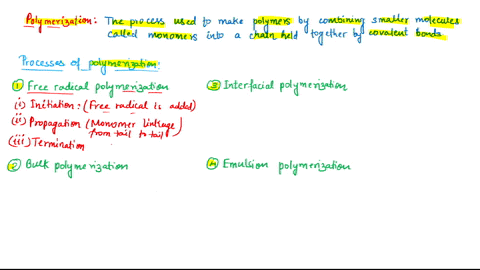 Polymerization: The process used to make polymers by combining smaller molecules
called monomers into a chain held together by covalent bonds.
Processes of polymerization:
① Free radical polymerization
(i) Initiation: (Free radical is added)
(ii) Propagation (Monomer linkage
from tail to tail)
(iii) Termination
② Bulk polymerization
③ Interfacial polymerization
④ Emulsion polymerization